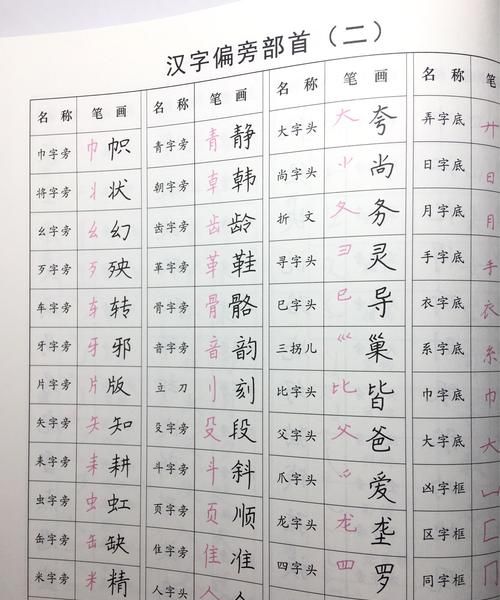 汉字偏旁部首（二）
名 称 笔 画 名 称 笔 画 名 称 笔 画 名 称 笔
巾字旁 巾 帜 青字旁 青 静 大字头 大 夸 弄字底 廾
将字旁 丬 状 朝字旁 龺 韩 尚字头 ⺌ 尚 日字底 日
幺字旁 幺 幻 齿字旁 齿 龄 折 文 夂 务 月字底 月
歹字旁 歹 殃 革字旁 革 鞋 寻字头 彐 灵 手字底 手
车字旁 车 转 骨字旁 骨 骼 巳字头 巳 导 衣字底 衣
牙字旁 牙 邪 音字旁 音 韵 三拐儿 巛 巢 系字底 糸
片字旁 片 版 立 刀 刂 刻 比字头 比 皆 巾字底 巾
矢字旁 矢 知 殳字旁 殳 段 父字头 父 爸 大字底 大
耒字旁 耒 耕 斗字旁 斗 斜 爪字头 爫 爱 凶字框
虫字旁 虫 虹 页字旁 页 顺 龙字头 龙 垄 区字框 匚
缶字旁 缶 缺 隹字旁 隹 准 四字头 罒 罗 同字框 冂
米字旁 米 精 人字头 人